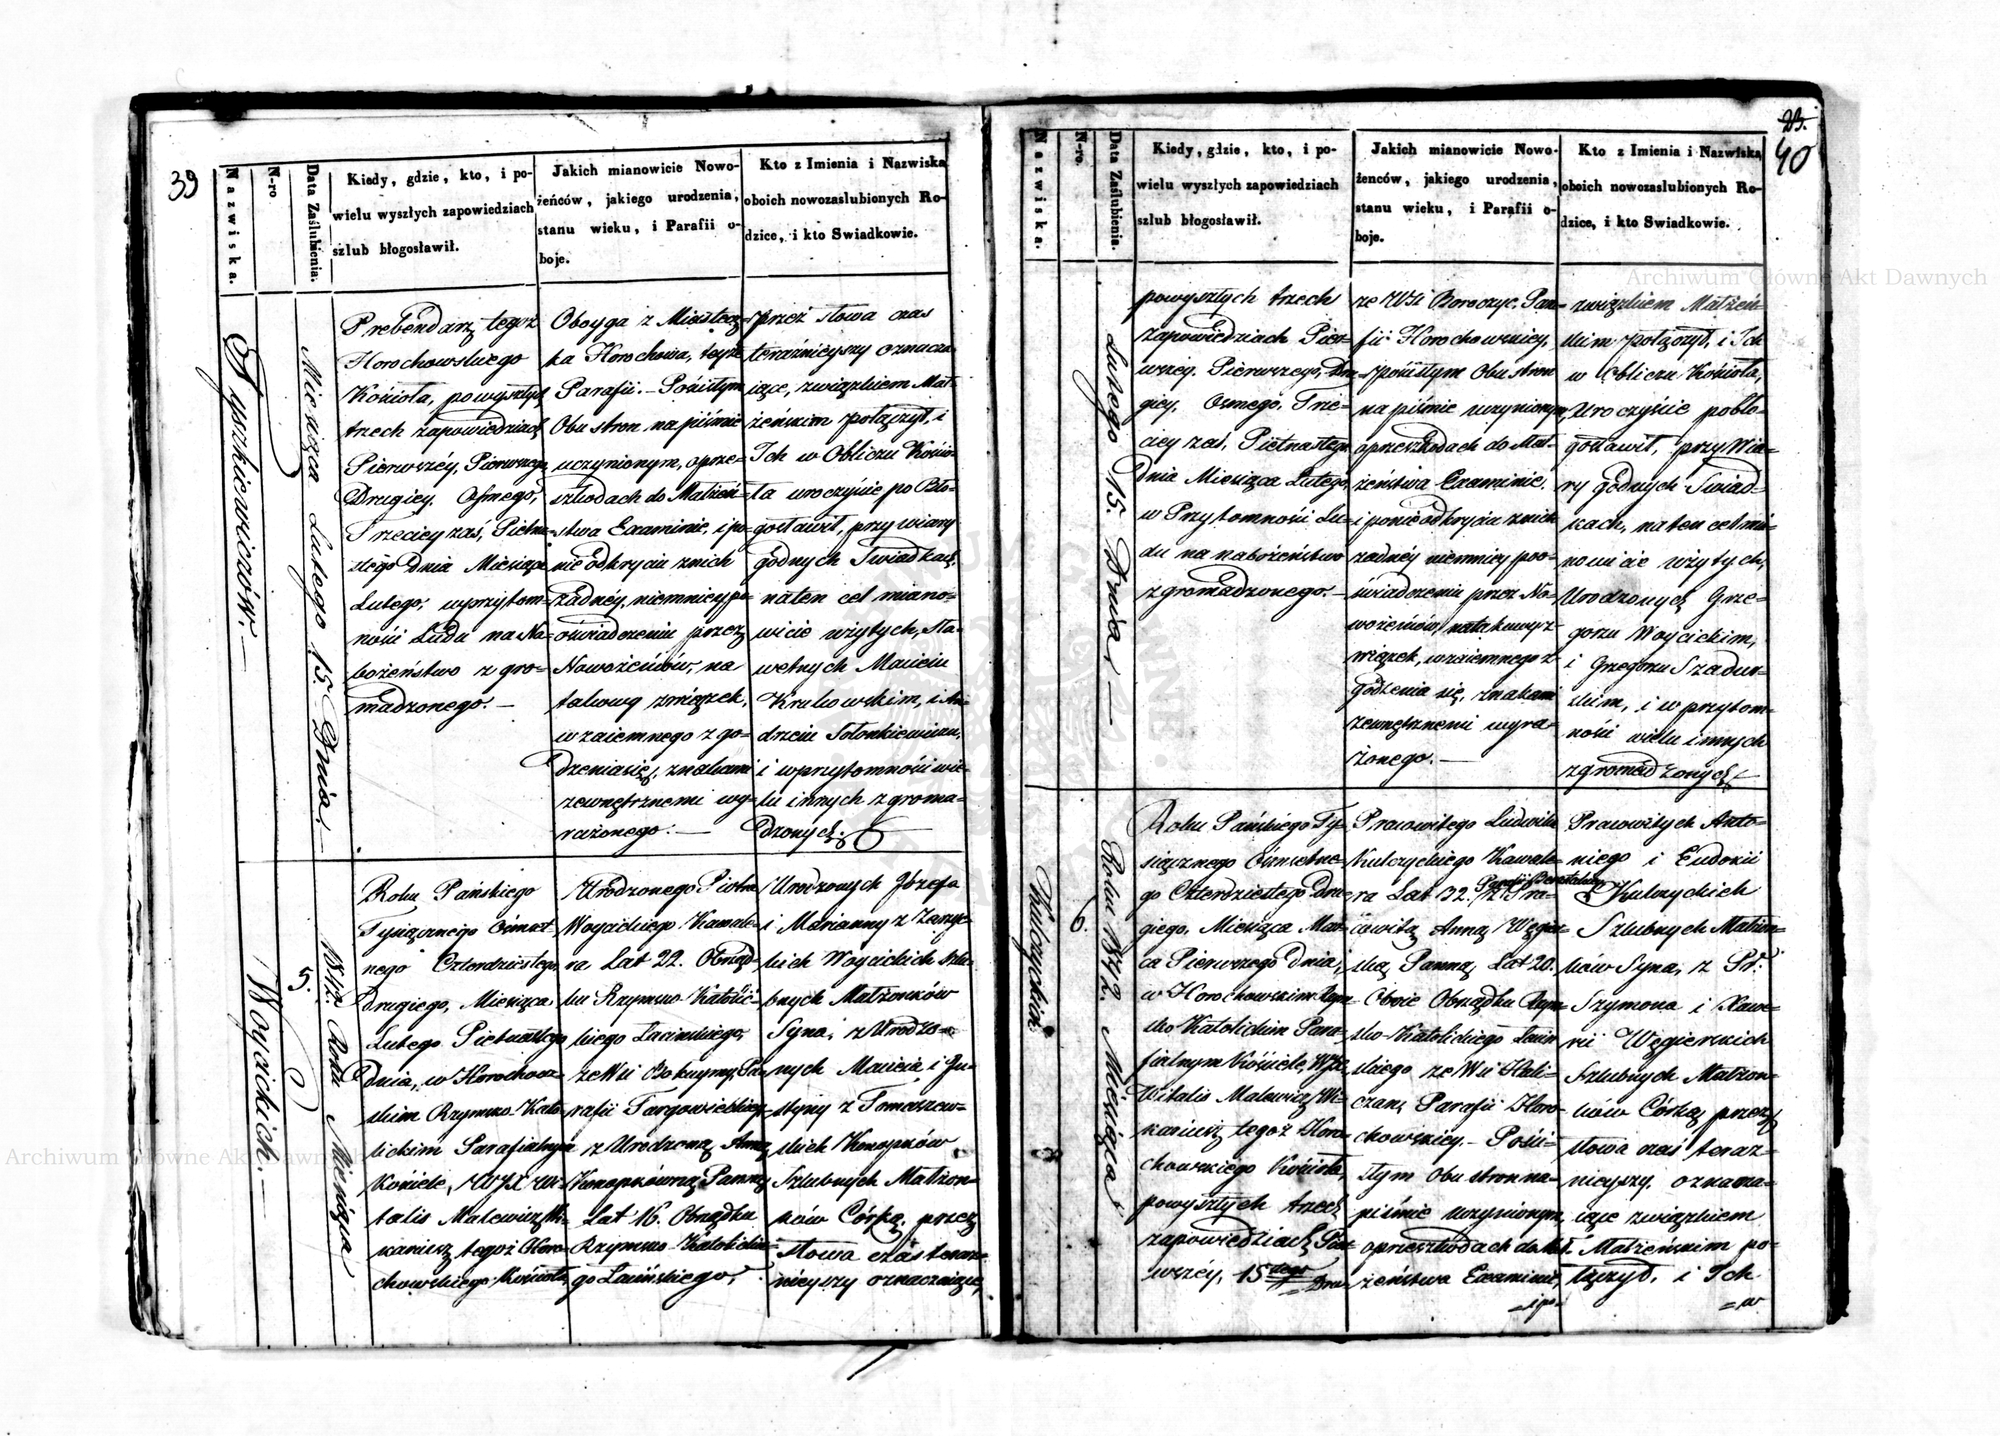 39
Nazwiska.
N-ro
Data Zaślubienia.
Kiedy, gdzie, kto, i po-
wielu wyszłych zapowiedziach
szlub błogosławił.
Jakich mianowicie Nowo-
żeńców, jakiego urodzenia,
stanu wieku, i Parafii o-
boje.
Kto z Imienia i Nazwiska
oboich nowozaslubionych Ro-
dzice, i kto Swiadkowie.
Tyszkiewiczów.—
Miesiąca Lutego 15. Dnia.—
Prebendarz tegoż
Horochowskiego
Kościoła, powyszłych
trzech zapowiedziach
Pierwszéy, Pierwszego
Drugiéy, Osmego,
Trzeciey zaś, Pietna-
stego Dnia Miesiąca
Lutego, wprzytom-
ności Ludu na Na-
bożeństwo z gro-
madzonego.—
Oboyga z Miastecz-
ka Horochowa, teyże
Parafii.— Pościstym
Obu stron na piśmie
uczynionym, o prze-
szkodach do Małżeń-
stwa Examinie, i po-
nie odkryciu z nich
żadnéy, niemniey po-
oświadczeniu przez
Nowożeńców, na
takowy związek,
wzaiemnego z go-
dzenia się, znakami
zewnętrznemi wy-
rażonego.—
przez słowa czas
teraźnieyszy oznacza-
iące, związkiem Mał-
żeńskim połączył, i
Ich w Obliczu Kościo-
ła uroczyście po Bło-
gosławił, przy wiary
godnych Swiadkach,
na ten cel miano-
wicie użytych, Sła-
wetnych Macieiu
Krukowskim, i An-
drzeiu
i wprzytomności wie-
lu innych zgroma-
dzonych.
Woycickich.—
5.
1842. Roku Miesiąca
Roku Pańskiego
Tysiącznego Ośmset-
nego Czterdziestego
drugiego, Miesiąca
Lutego Pietnastego
Dnia, w Horochow-
skim Rzymsko-Kato-
lickim Parafialnym
Kościele, WJX Wi-
talis Malewicz Wi-
kariusz tegoż Horo-
chowskiego Kościoła,
Urodzonego Piotra
Woycickiego Kawale-
ra Lat 22. Obrząd-
ku Rzymsko Katolic-
kiego Łacińskiego,
ze Wsi Boknymy, Pa-
rafii Targowickiey
z Urodzoną Anną
Konopkówną Panną
Lat 16. Obrządku
Rzymsko-Katolickie-
go Łacińskiego,
Urodzonych Józefa
i Marianny z
Woycickich Szlu-
bnych Małżonków
Syna, z Urodzo-
nych Macieia i Ju-
styny z Tomaszew-
skich Konopków
Szlubnych Małżon-
ków Córką, przez
słowa czas teraz-
nieyszy oznaczaiące,
23.
40
Nazwiska.
N-ro
Data Zaślubienia.
Kiedy, gdzie, kto, i po-
wielu wyszłych zapowiedziach
szlub błogosławił.
Jakich mianowicie Nowo-
żeńców, jakiego urodzenia,
stanu wieku, i Parafii o-
boje.
Kto z Imienia i Nazwiska
oboich nowozaslubionych Ro-
dzice, i kto Swiadkowie.
Lutego 15. Dnia.—
powyszłych trzech
zapowiedziach Pier-
wszey, Pierwszego, Dru-
giey, Osmego, Trze-
ciey zaś, Pietnastego
Dnia Miesiąca Lutego,
w Przytomności Lu-
du na nabożeństwo
zgromadzonego.—
ze Wsi Boroczyc, Para-
fii Horochowskiey,
Pościstym Obu stron
na piśmie uczynionym,
o przeszkodach do Mał-
żeństwa Examinie,
i po nieodkryciu z nich
żadnéy niemniey poo-
świadczeniu przez No-
wożeńców, na takowy z-
wiązek, wzaiemnego z-
godzenia się, znakami
zewnętrznemi wyra-
żonego.—
związkiem Małżeń-
skim połączył, i Ich
w Obliczu Kościoła,
Uroczyście pobło-
gosławił, przy Wia-
ry godnych Swiad-
kach, na ten cel mia-
nowicie użytych,
Urodzonych Grze-
gorzu Woycickim,
i Grzegorzu Szadur-
skim, i w przytom-
ności wielu innych
zgromadzonych
Kulczyckich.
6.
Roku 1842. Miesiąca
Roku Pańskiego Ty-
siącznego Ośmsetne-
go Czterdziestego Dru-
giego, Miesiąca Mar-
ca Pierwszego Dnia,
w Horochowskim Rzym-
sko-Katolickim Para-
fialnym Kościele, WJX
Witalis Malewicz Wi-
kariusz tegoż Horo-
chowskiego Kościoła,
powyszłych trzech
zapowiedziach, Pier-
wszéy, 15 tego Dru-
Pracowitego Ludwika
Kulczyckiego Kawale-
ra Lat 32. z Pra-
Parafii
cowitą Anną Węgier-
ską, Panną, Lat 20.
Oboie Obrządku Rzym-
sko-Katolickiego Łaciń-
skiego ze Wsi Hali-
czan, Parafii Horo-
chowskiey.— Pości-
stym Obu stron na-
piśmie uczynionym,
o przeszkodach do Mał-
żeństwa Examinie,
=ipo=
Pracowitych Anto-
niego i Eudoxii
Kulczyckich
Szlubnych Małżon-
ków Syna, z Pr:
Szymona i Xawe-
rii Węgierskich
Szlubnych Małżon-
ków Córką, przez
słowa czas teraz-
nieyszy, oznacza-
iące związkiem
Małżeńskim po-
łączył, i Ich
=w
Archiwum Główne Akt Dawnych
Archiwum Główne Akt Dawnych